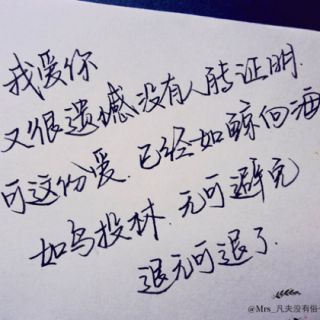 我爱你
又很遗憾没有人能证明.
可这份爱.已经如鲸向海
如鸟投林.无可避免
退无可退了.
@Mrs_凡夫没有俗